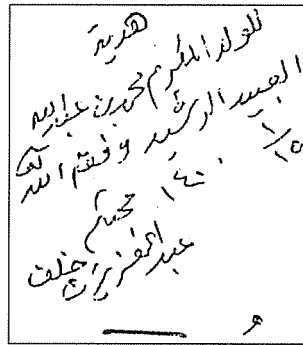 هدية
للولد المكرم محمد بن عبدالله
العبيد الرشيد وفقه الله
١٥/١ ١٤٠٠
محبكم
عبدالعزيز بن خلف